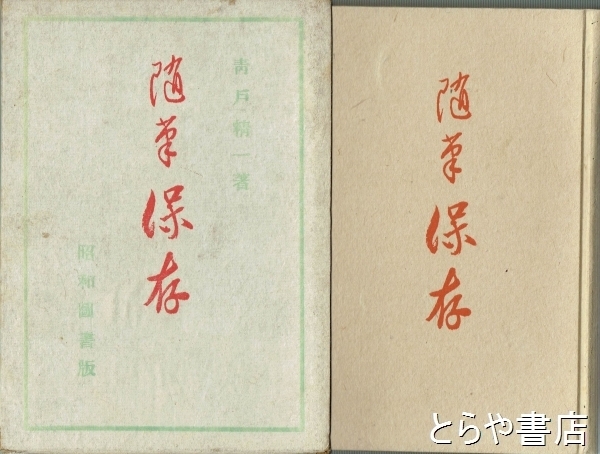 青戸精一著
随筆保存
昭和圖書版
随筆保存
とらや書店